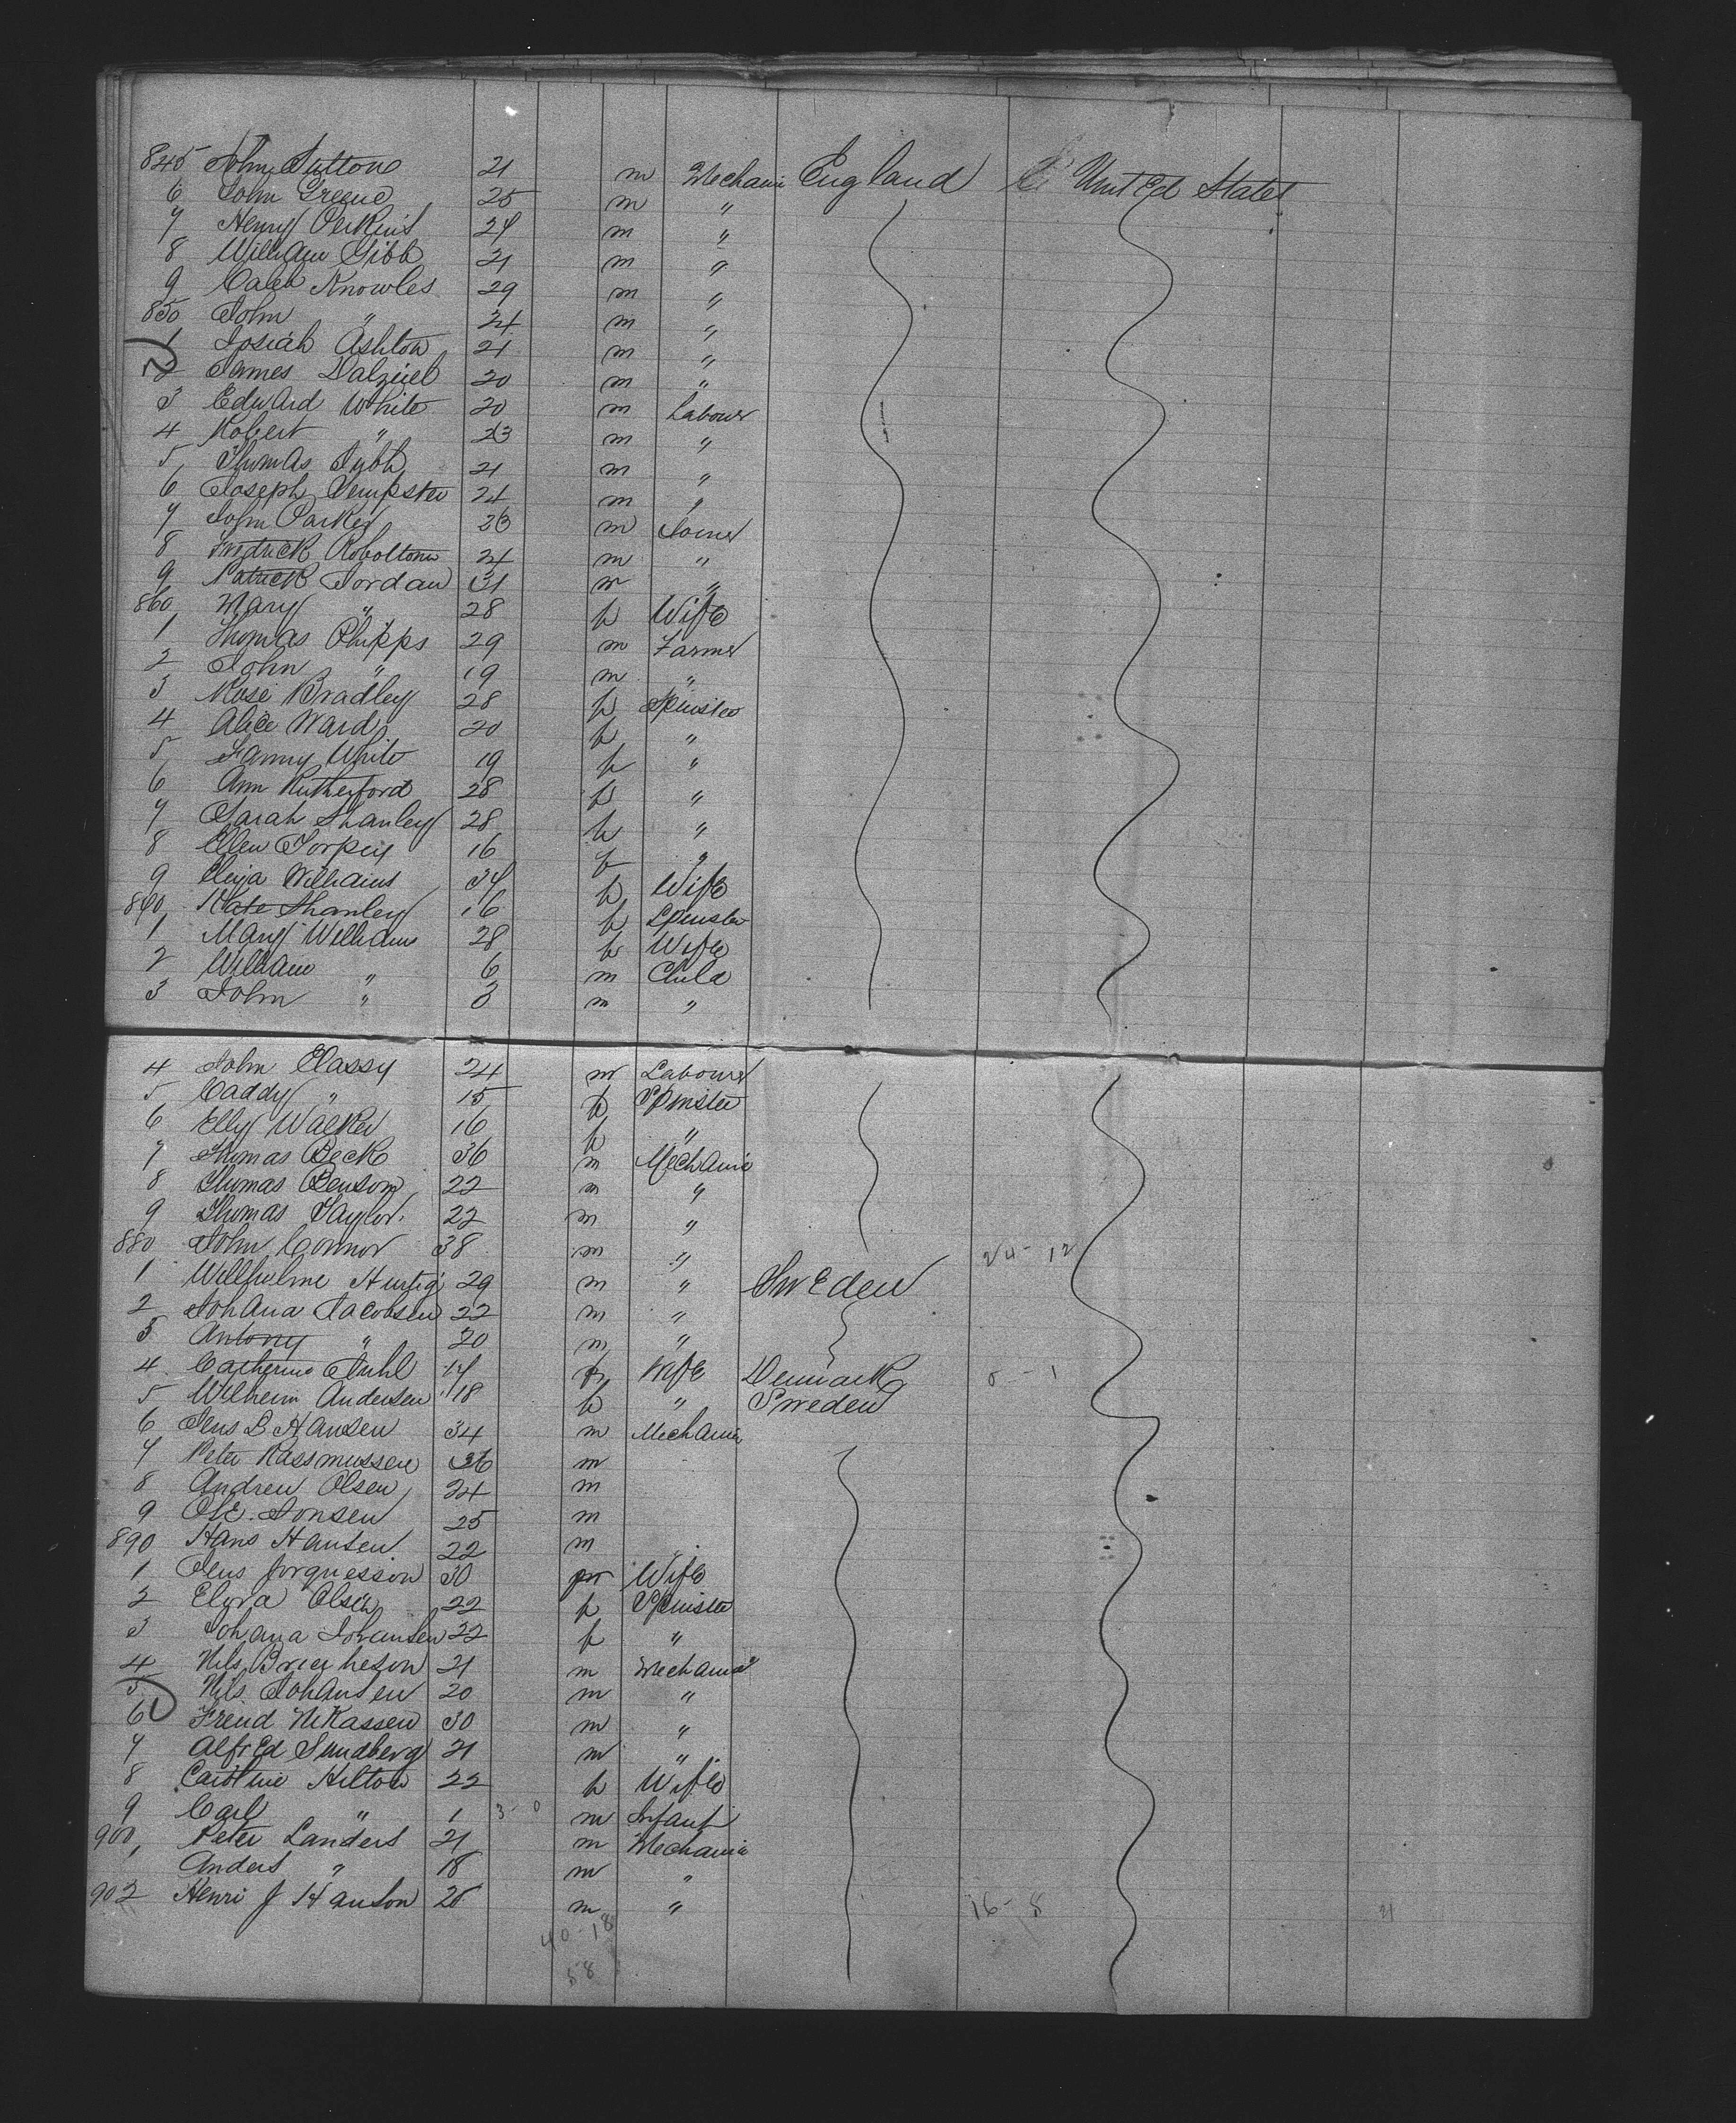 845 John Sutton 21 m Mechanic England United States
6 John Greene 25 m "
7 Henry Perkins 24 m "
8 William Gibb 21 m "
9 Caleb Knowles 29 m "
850 John " 24 m "
1 Josiah Ashton 21 m "
2 James Dalziel 20 m "
3 Edward White 20 m Labour
4 Robert " 23 m "
5 Thomas 21 m "
6 Joseph Dempster 24 m "
7 John Parker 23 m Joiner
8 Fredrick 24 m "
9 Patrick Jordan 31 m "
860 Mary " 28 f Wife
1 Thomas Phipps 29 m Farmer
2 John " 19 m "
3 Rose Bradley 28 f Spinster
4 Alice Ward 20 f "
5 Fanny White 19 f "
6 Ann Rutherford 28 f "
7 Sarah Shanley 28 f "
8 Ellen Torpey 16 f "
9 Eliza Williams 34 f Wife
870 Kate Shanley 16 f Spinster
1 Mary Williams 28 f Wife
2 William " 6 m Child
3 John " 3 m "
4 John Classy 24 m Labourer
5 Caddy " 15 f Spinster
6 Elly Walker 16 f "
7 Thomas Beck 36 m Mechanic
8 Thomas Benson 22 m "
9 Thomas Taylor 22 m "
880 John Connor 38 m " 24-12
1 Willhelme Hustig 29 m " Sweden
2 Johana Jacobsen 22 m "
3 Antony " 20 m "
4 Catherine 17 f Wife Denmark 0-1
5 Wilheim Andersen 18 f " Sweden
6 Jens B Hansen 34 m Mechanic
7 Peter Rassmussen 36 m
8 Andrew Olsen 24 m
9 Ole Jonsen 25 m
890 Hans Hansen 22 m
1 Jens Jorguesson 30 m Wife
2 Elyra Olsen 22 f Spinster
3 Johana Johansen 22 f "
4 Nils 21 m Mechanic
5 Nils Johansen 20 m "
6 30 m "
7 Alfred Sundberg 21 m "
8 Caroline Hilton 22 f Wife
9 Carl " 1 3-0 m Infant
900 Peter Landers 21 m Mechanic
1 Anders " 18 m "
902 Henri J Hanson 25 m " 16-8 21
40-18
58